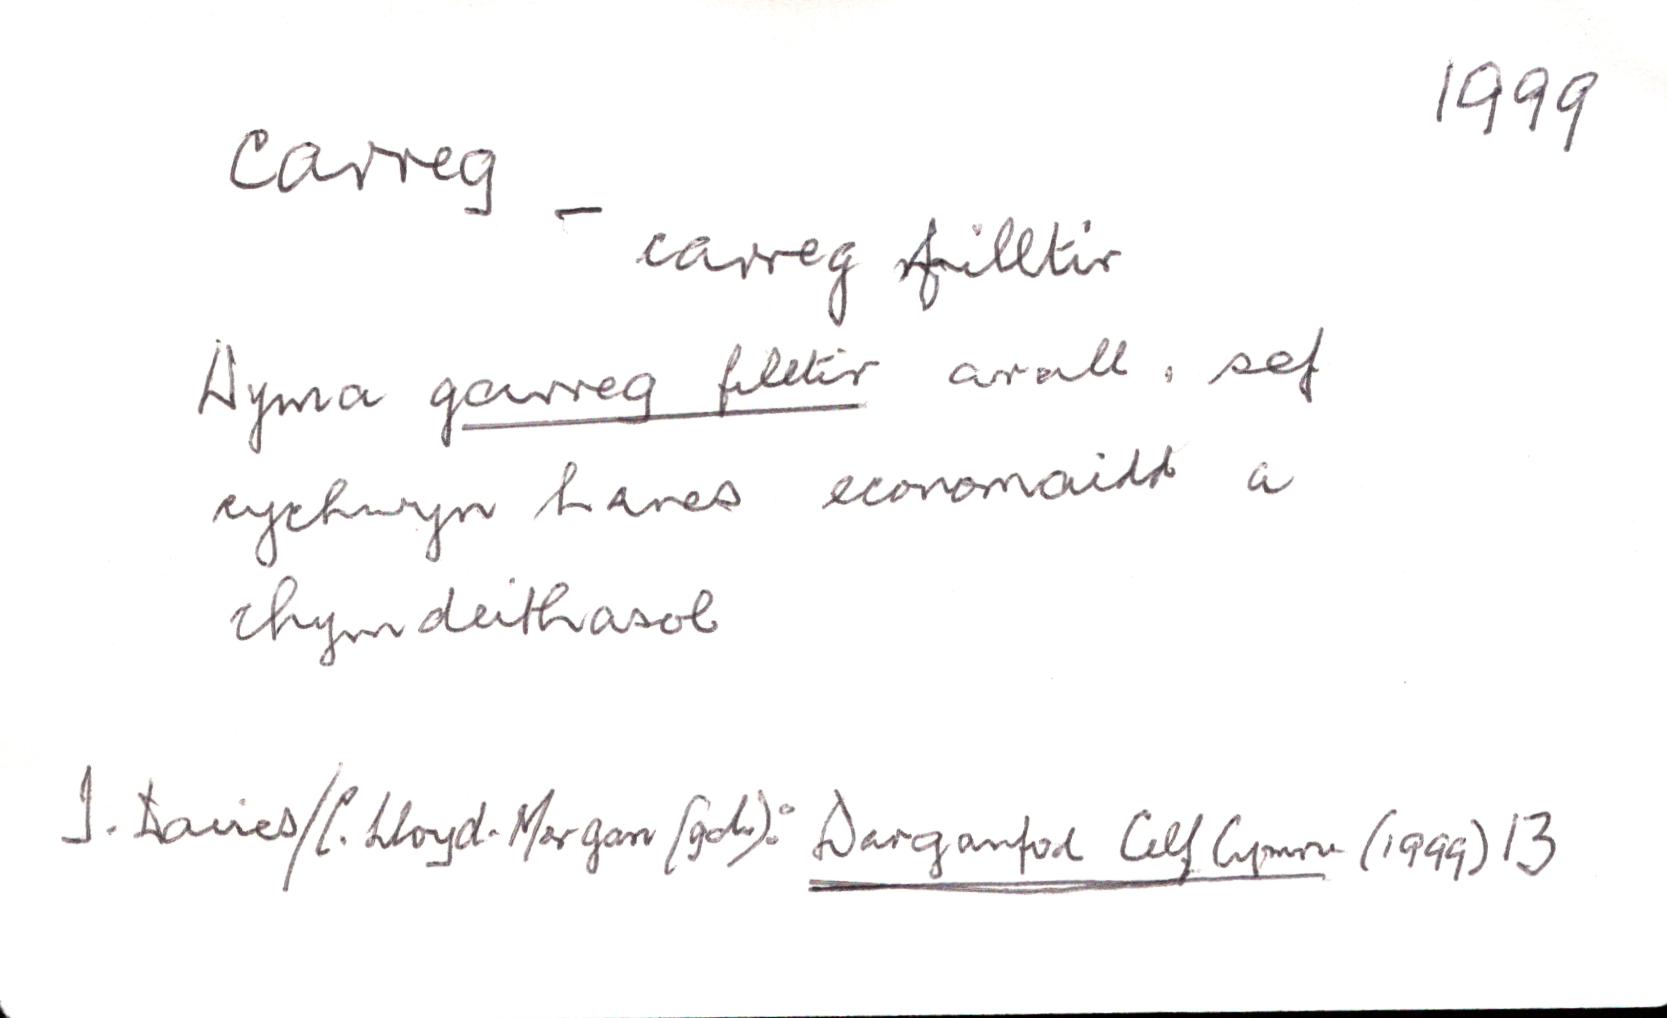 1999
carreg –
carreg filltir
Dyma garreg filltir arall, sef
cychwyn hanes economaidd a
chymdeithasol
I. Davies/C. Lloyd-Morgan (gol.): Darganfod Celf Cymru (1999) 13